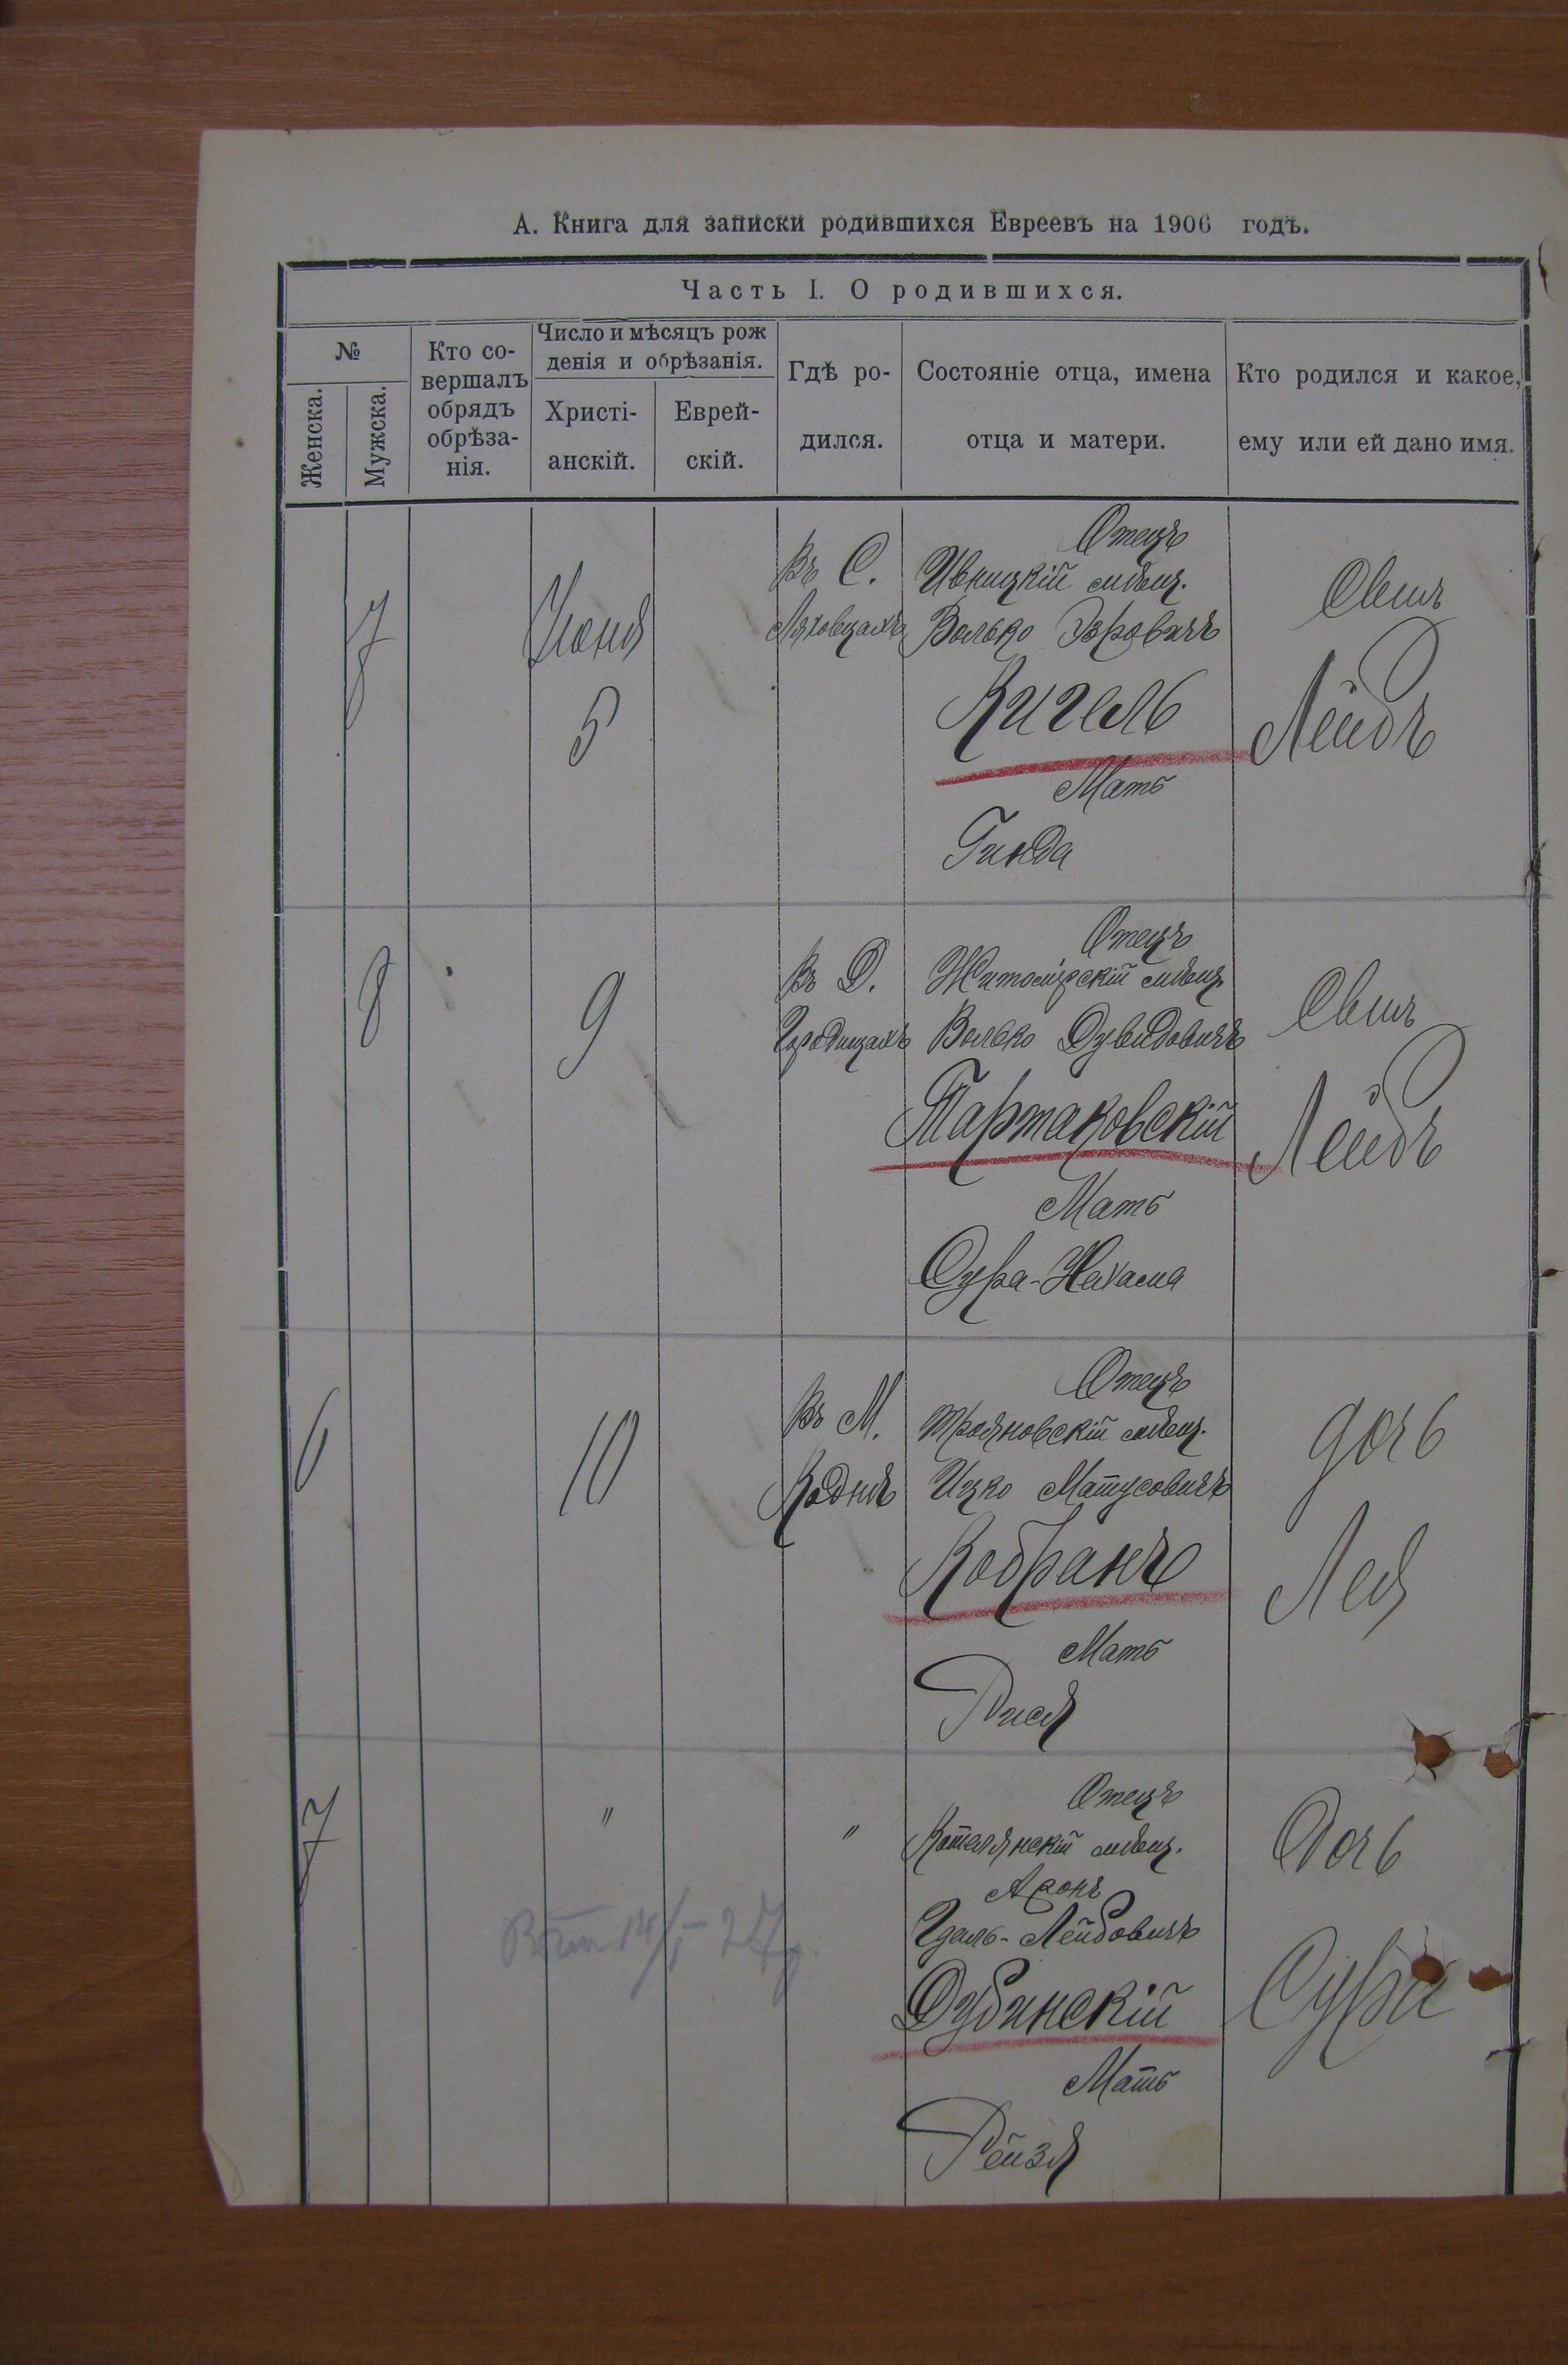 А. Книга для записки родившихся Евреевъ на 1906 годъ.
Часть I. О родившихся.
№
Женска.
Мужска.
Кто со-
вершалъ
обрядъ
обрѣза-
нія.
Число и мѣсяцъ рож
денія и обрѣзанія.
Христі-
анскій.
Еврей-
скій.
Гдѣ ро-
дился.
Состояніе отца, имена
отца и матери.
Кто родился и какое,
ему или ей дано имя.
7
Июня
5
Въ С.
Ляховцахъ
Отецъ
Ивницкій мѣщ.
Волько Эрровичъ
Кигель
Мать
Гинда
Сынъ
Лейбъ
8
9
Въ Д.
Городищахъ
Отецъ
Житомірскій мѣщ.
Волько Дувидовичъ
Тартаковскій
Мать
Сура-Нехама
Сынъ
Лейбъ
6
10
Въ М.
Коднѣ
Отецъ
Трояновскій мѣщ.
Ицко Матусовичъ
Кобранъ
Мать
Рися
дочь
Лея
7
"
"
Отецъ
Котелянскій мѣщ.
Аронъ
Удель-Лейбовичъ
Дубинскій
Мать
Рейзя
Дочь
Сура